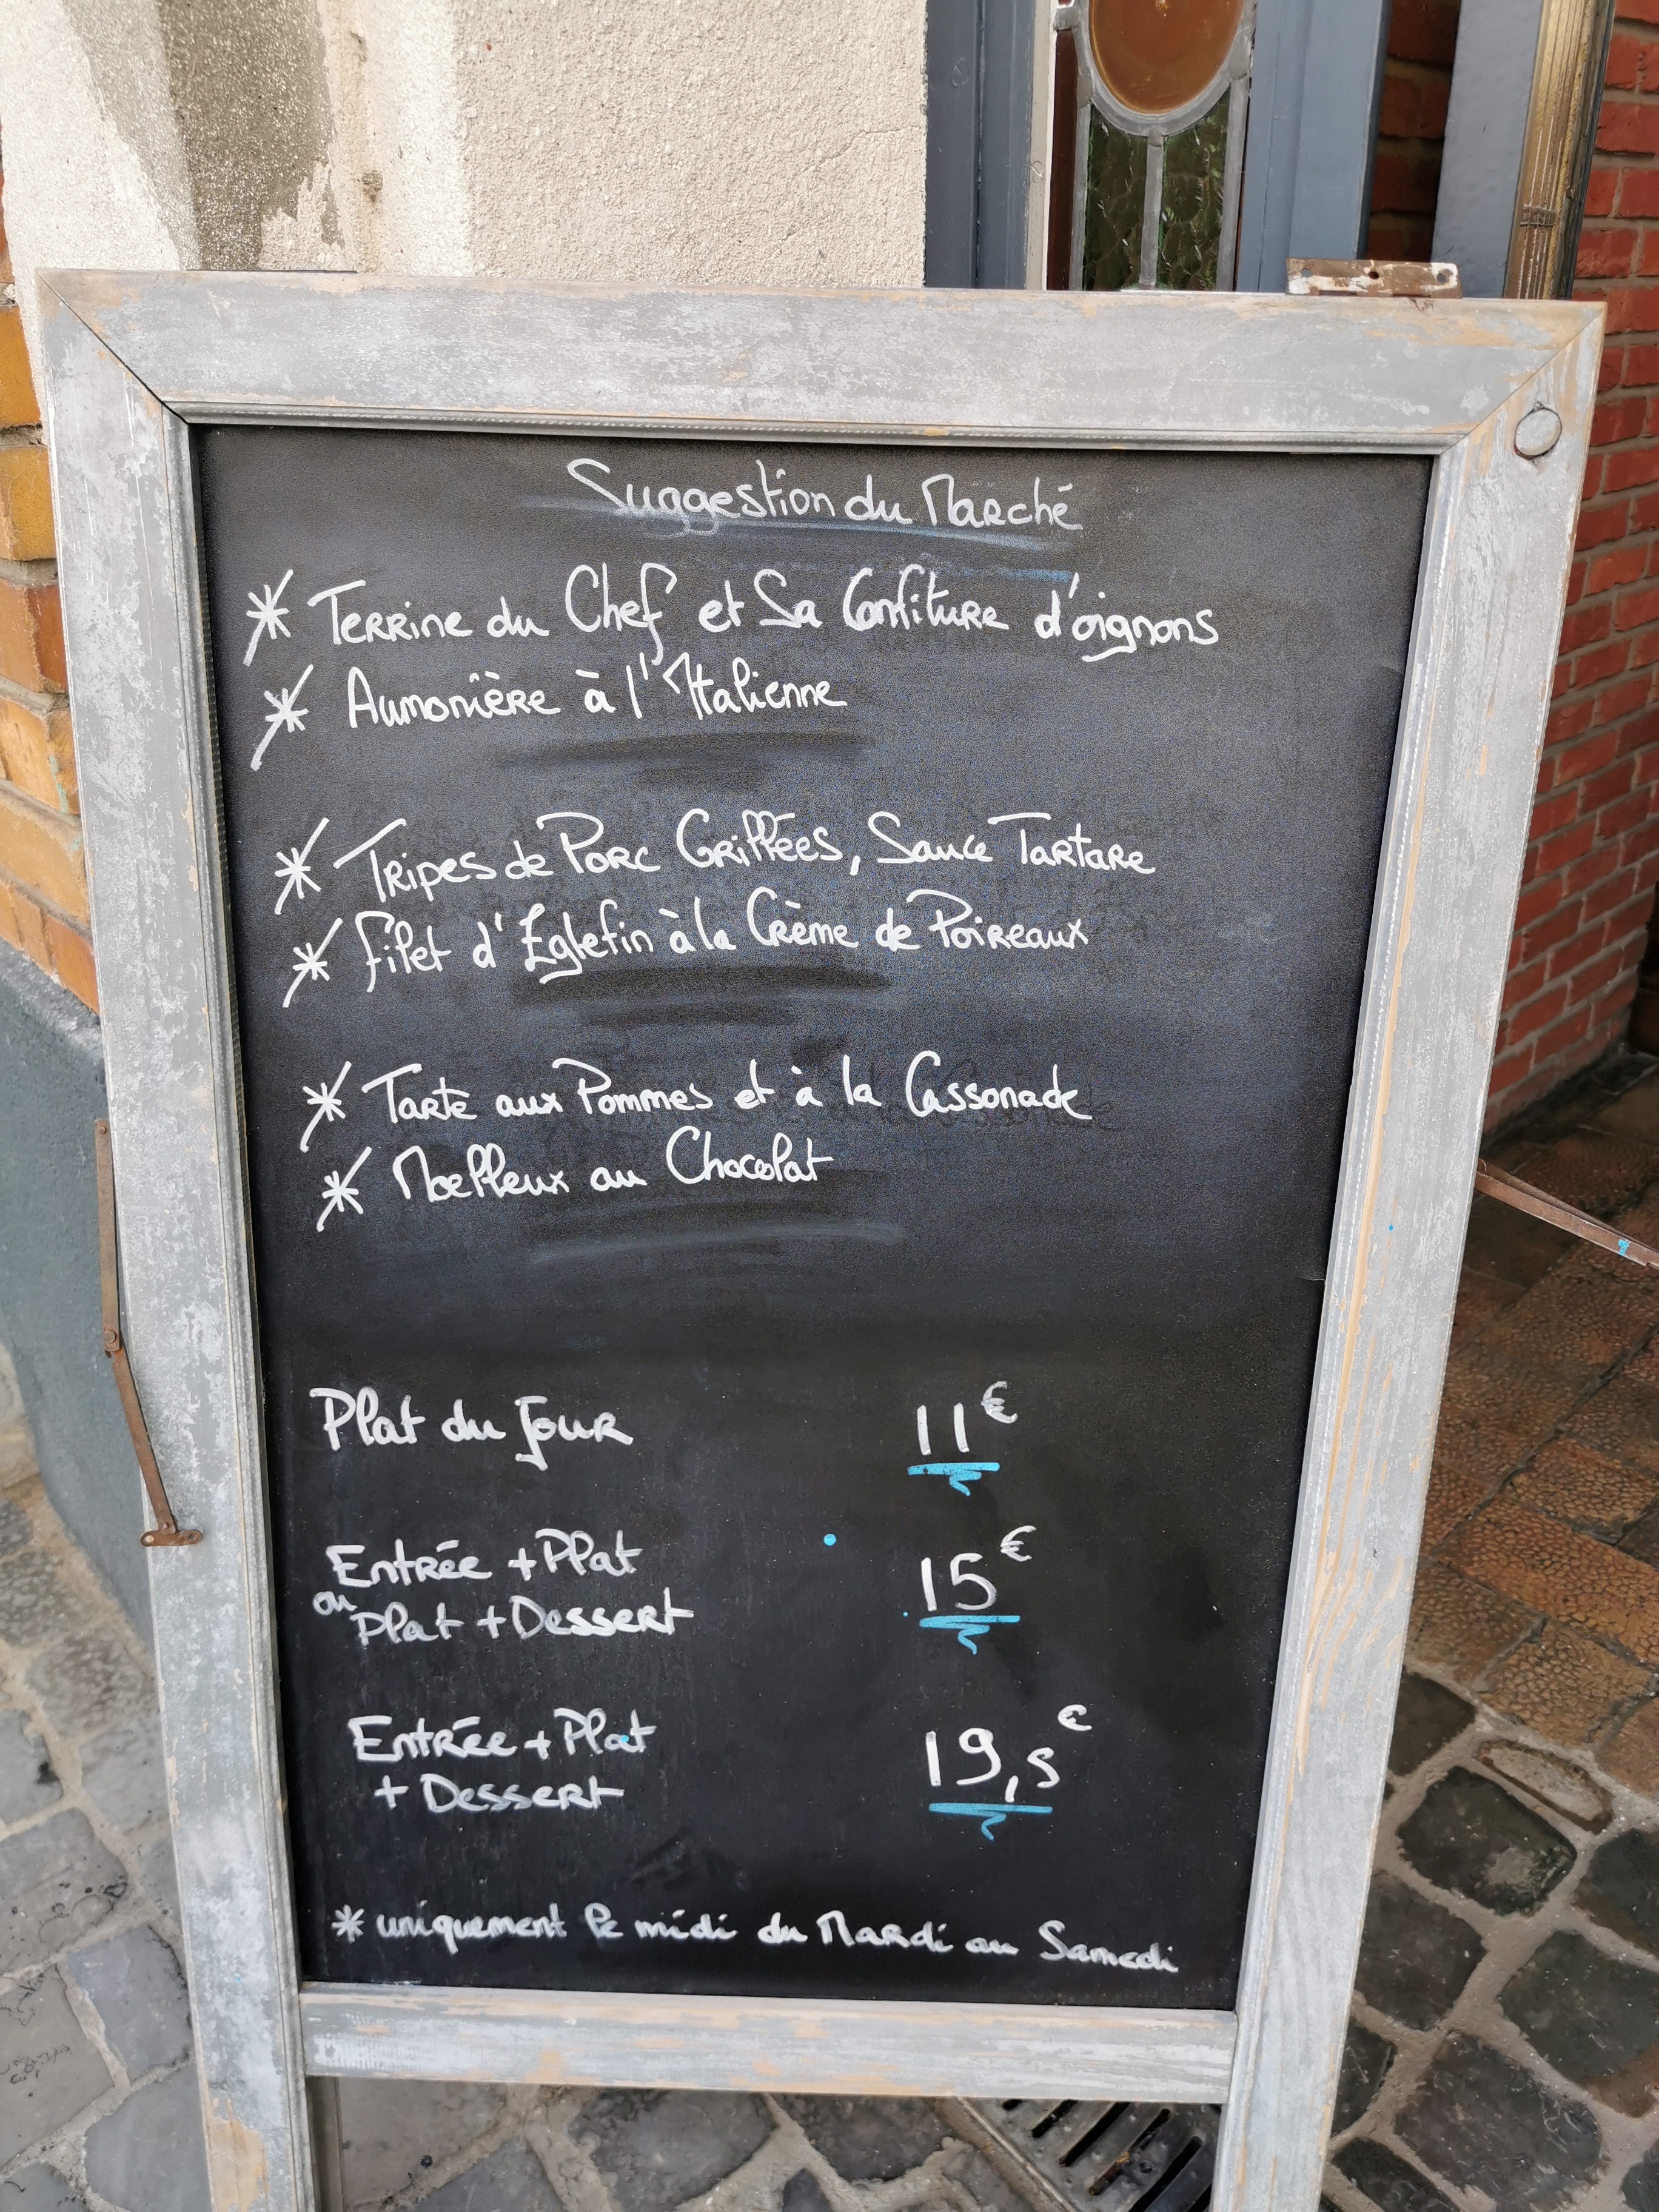 Suggestion du Marché
* Terrine du Chef et Sa Confiture d'oignons
* Aumonière à l'Italienne
* Tripes de Porc Grillées, Sauce Tartare
* Filet d'Eglefin à la Crème de Poireaux
* Tarte aux Pommes et à la Cassonade
* Moelleux au Chocolat
Plat du Jour 11€
Entrée + Plat
ou Plat + Dessert 15€
Entrée + Plat
+ Dessert 19,5€
* uniquement le midi du Mardi au Samedi